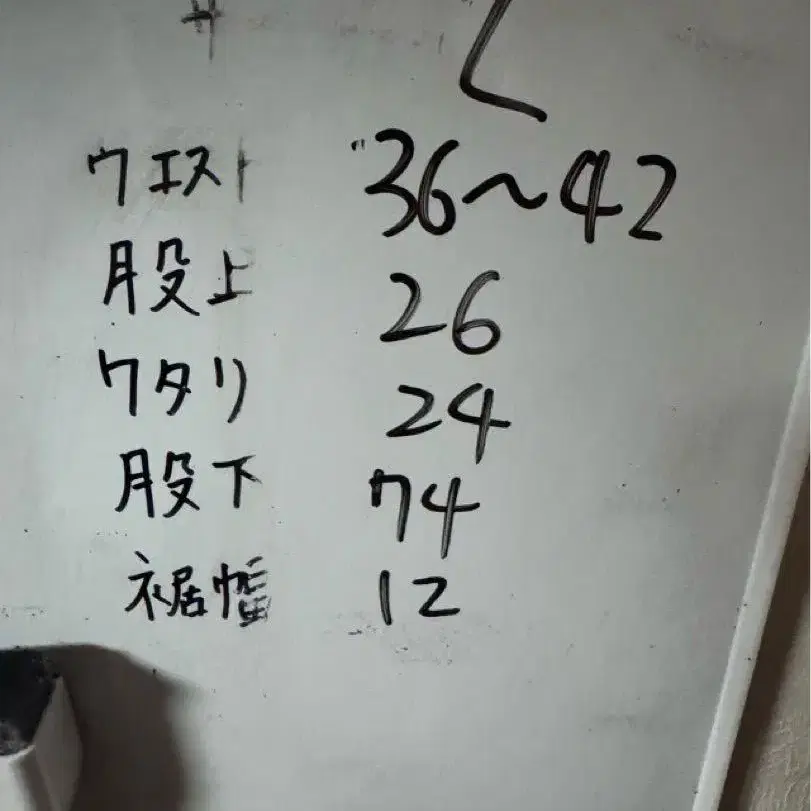 ウエスト 36〜42
股上 26
ワタリ 24
股下 74
裾幅 12